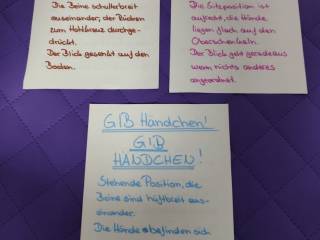 Die Beine schulterbreit
auseinander, der Rücken
zum Hohlkreuz durchge-
drückt.
Der Blick gesenkt auf den
Boden.
Die Sitzposition ist
aufrecht, die Hände
liegen flach auf den
Oberschenkeln.
Der Blick geht geradeaus
wenn nichts anderes
angeordnet.
GIB Händchen!
GIB
HÄNDCHEN!
Stehende Position, die
Beine sind hüftbreit aus-
einander.
Die Hände befinden sich